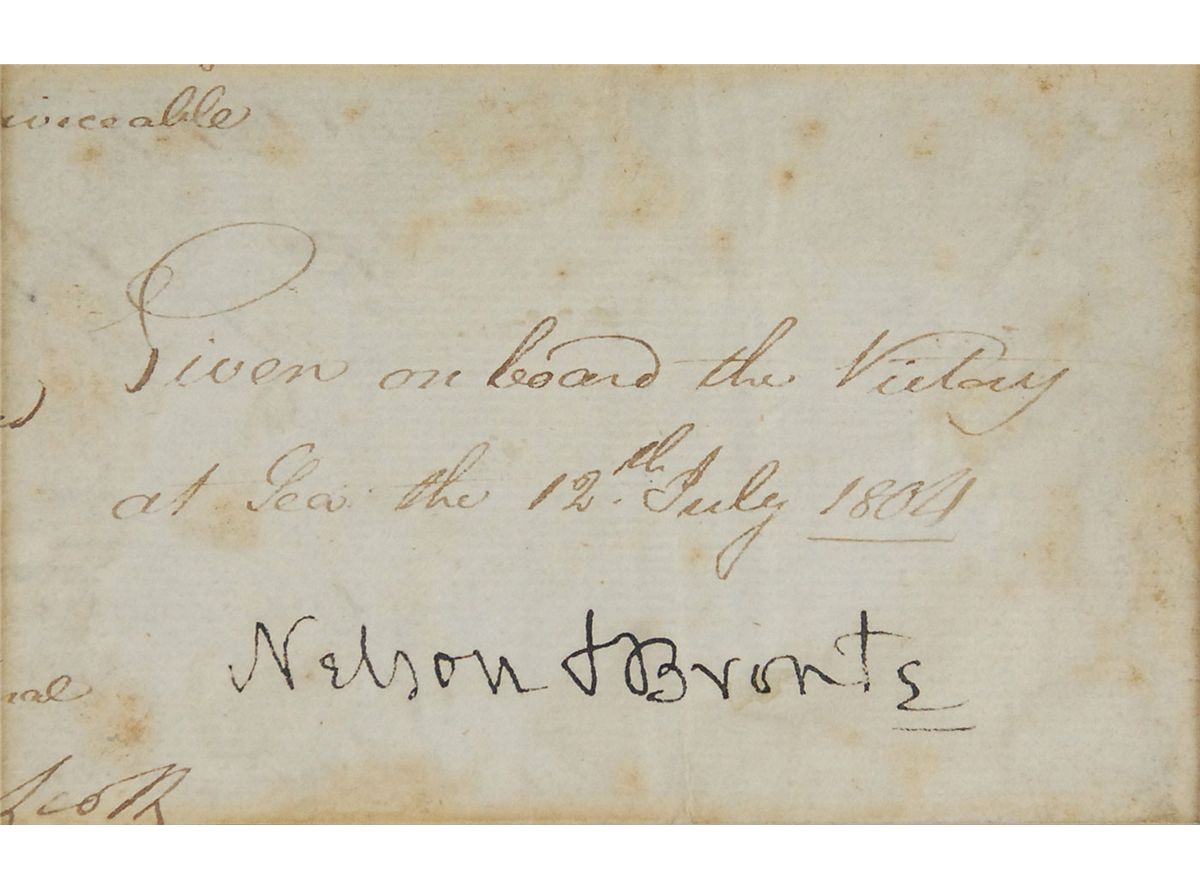 viceable
Given on board the Victory
at Sea the 12th. July 1804
Nelson & Bronte
nal
Scott